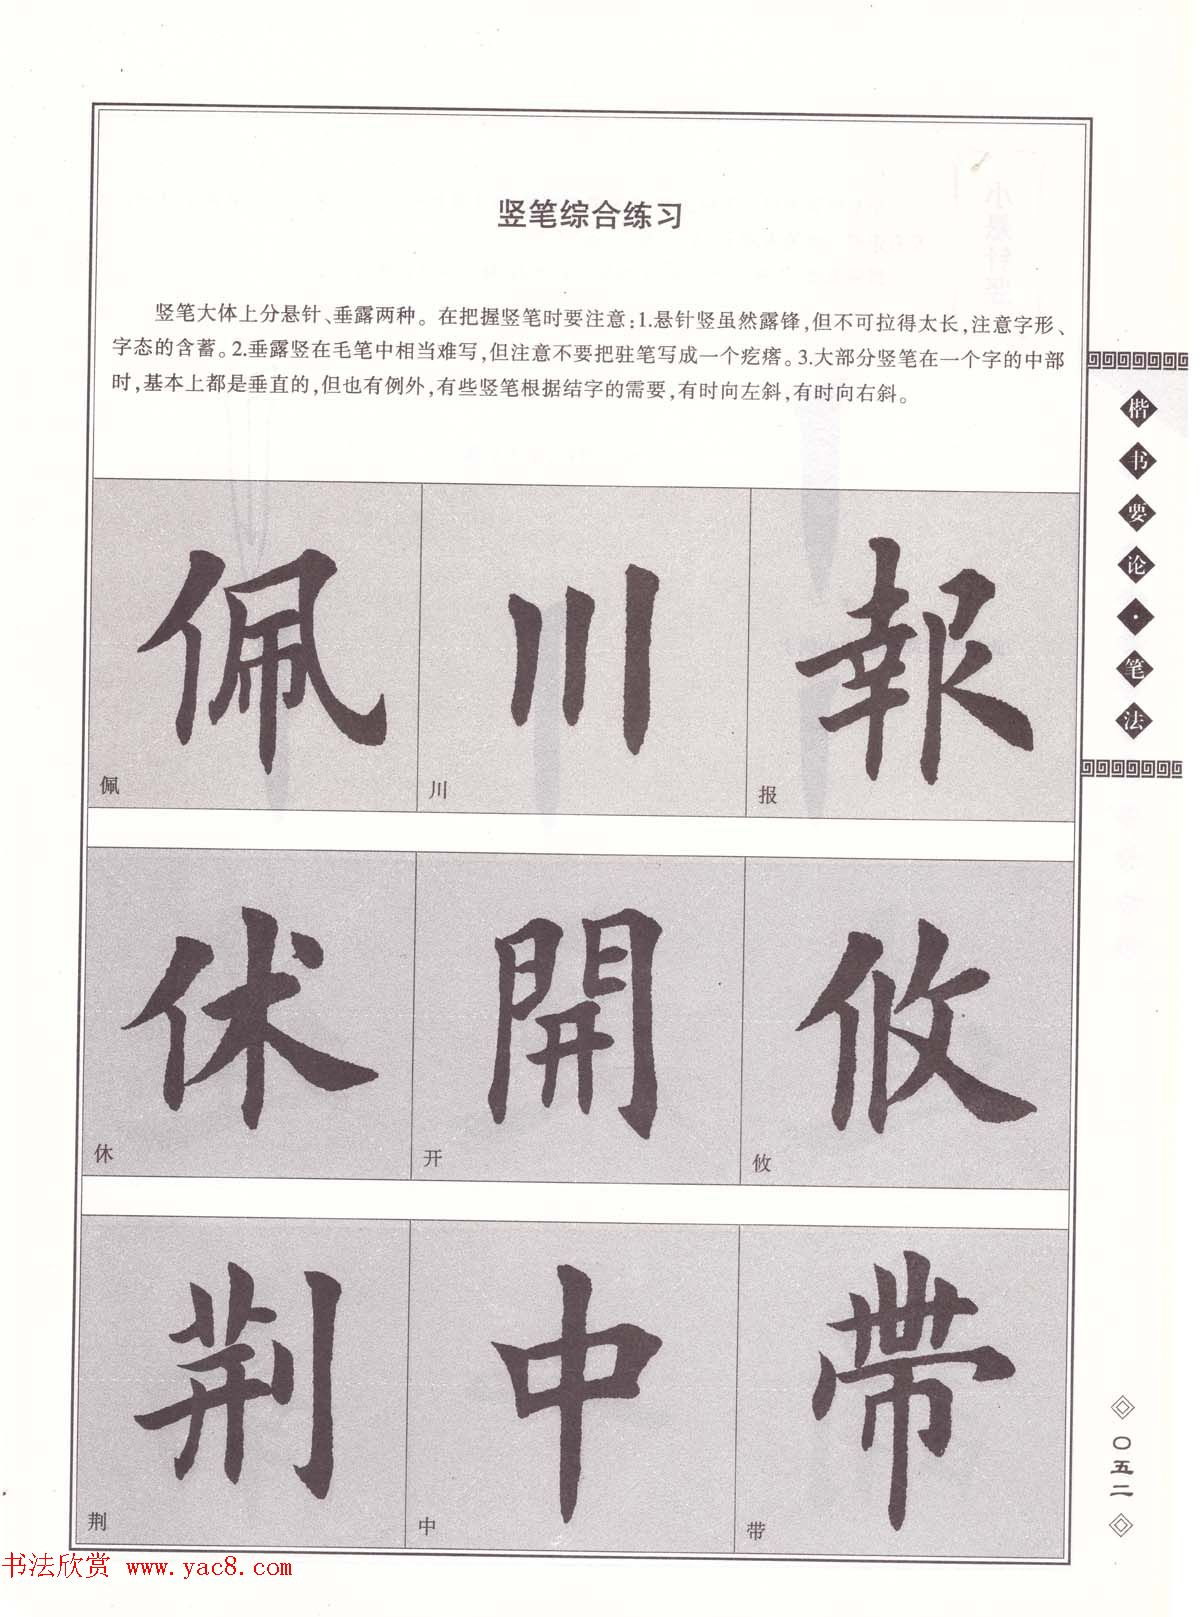 竖笔综合练习
竖笔大体上分悬针、垂露两种。在把握竖笔时要注意：1.悬针竖虽然露锋，但不可拉得太长，注意字形、
字态的含蓄。2.垂露竖在毛笔中相当难写，但注意不要把驻笔写成一个疙瘩。3.大部分竖笔在一个字的中部
时，基本上都是垂直的，但也有例外，有些竖笔根据结字的需要，有时向左斜，有时向右斜。
佩 川 報
佩 川 报
休 開 攸
休 开 攸
荆 中 帶
荆 中 带
楷书要论·笔法
〇五二
书法欣赏 www.yac8.com